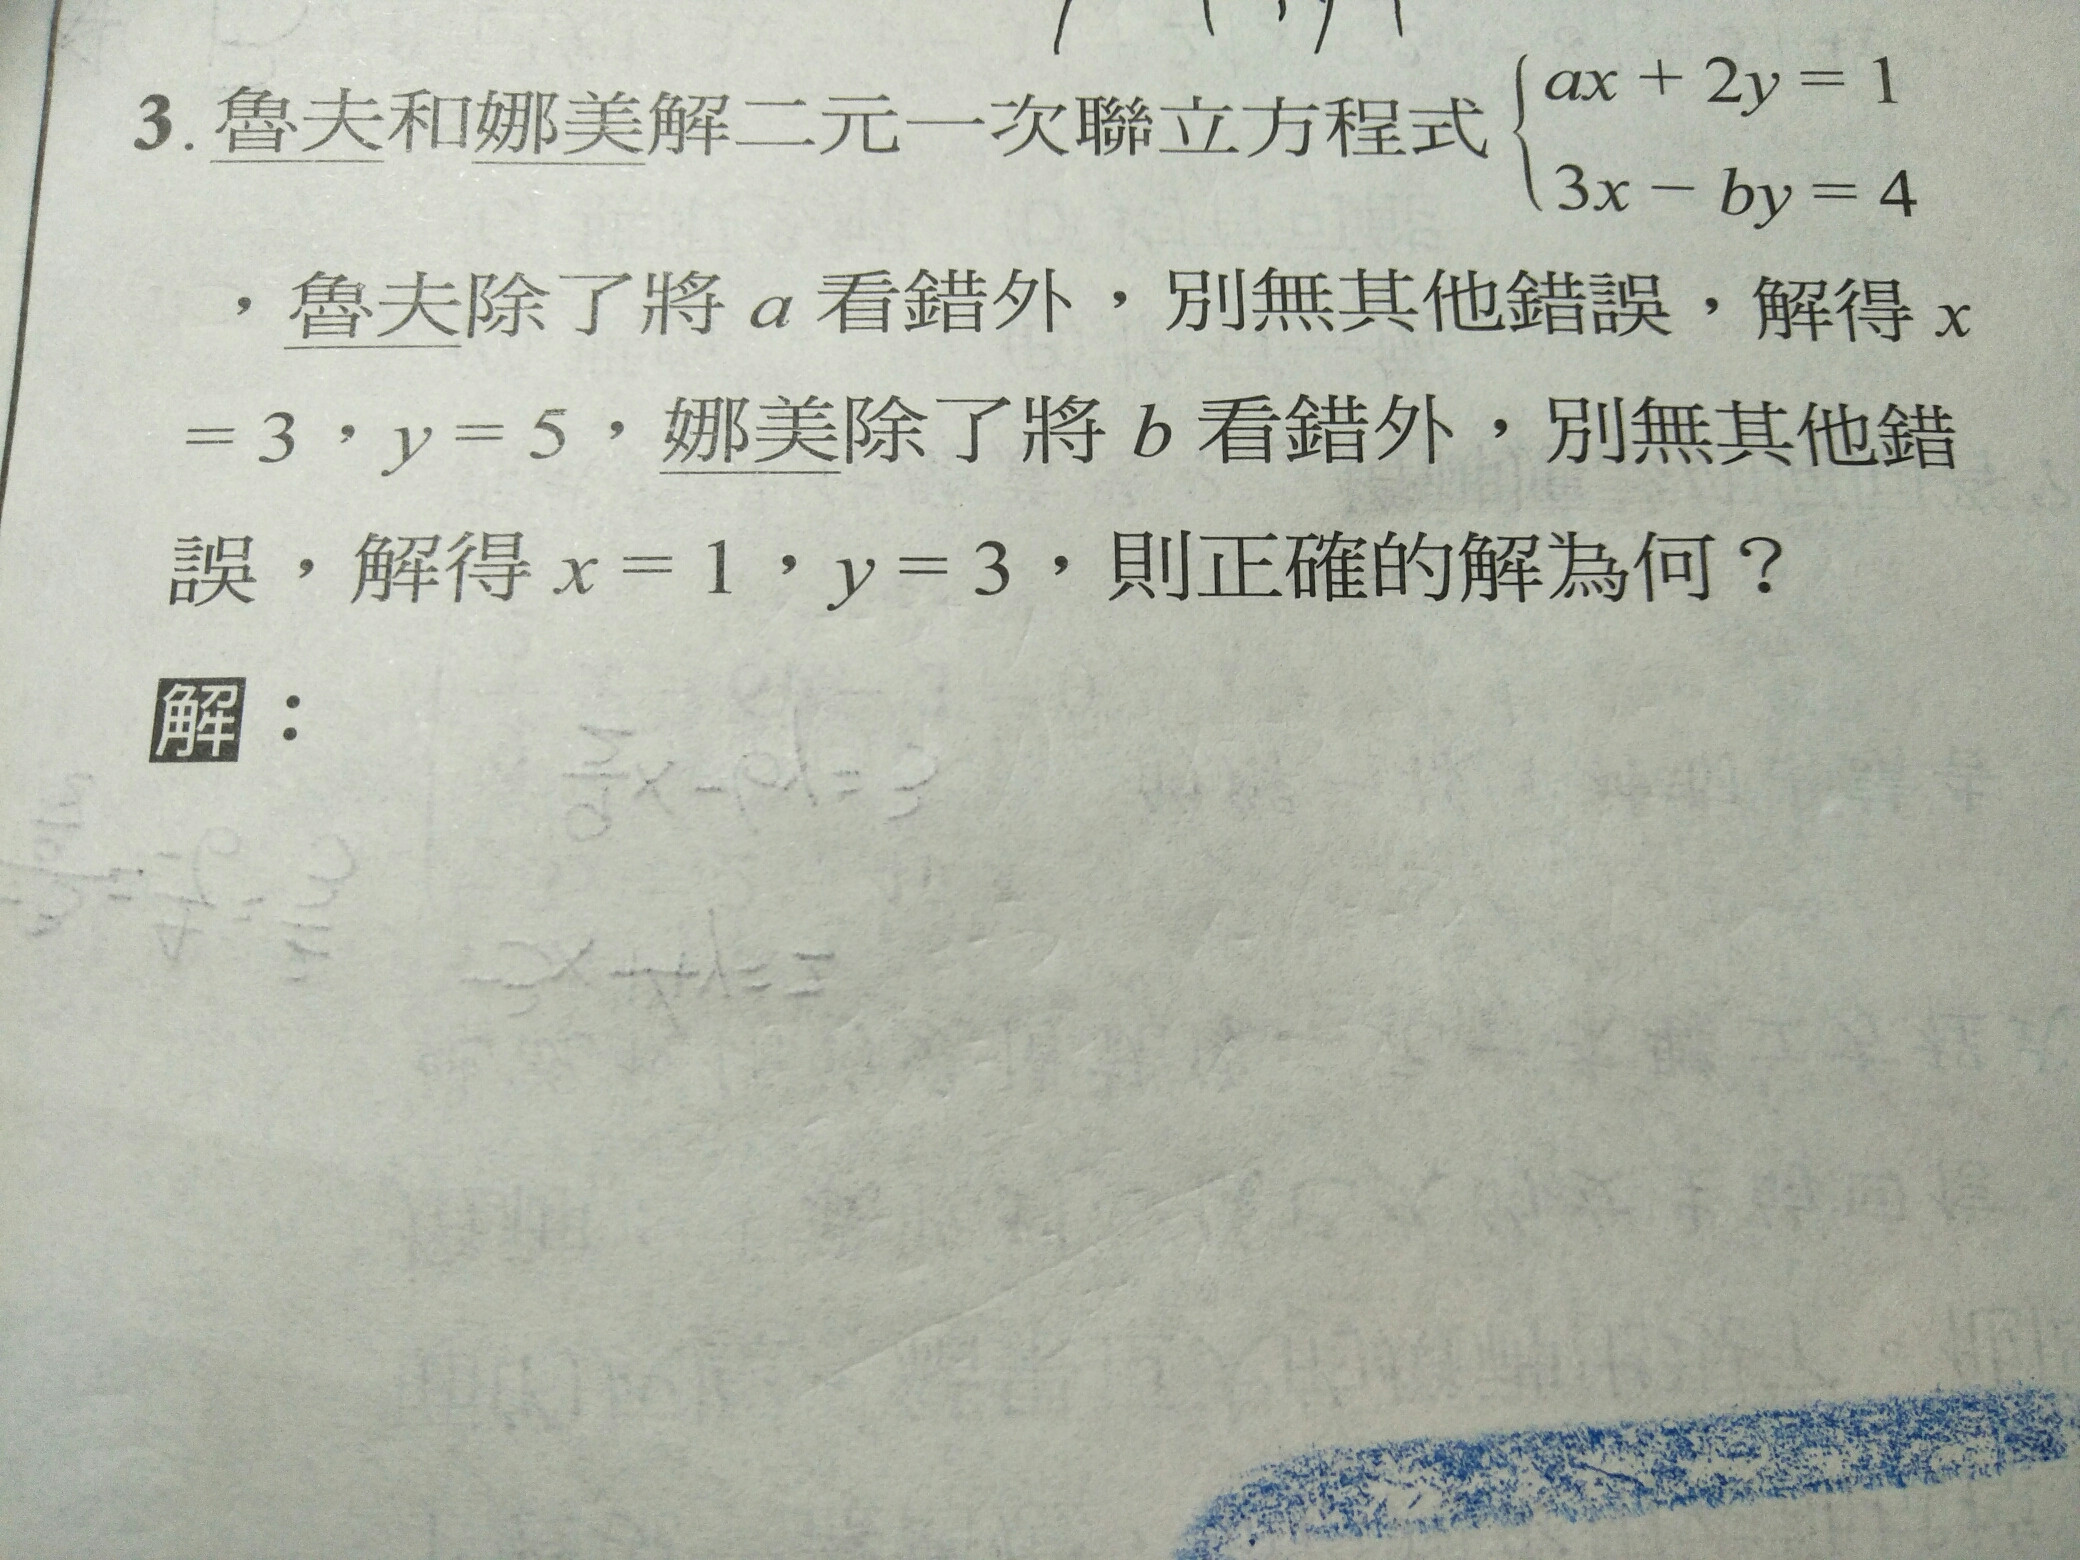 3. 魯夫和娜美解二元一次聯立方程式 { ax + 2y = 1
3x − by = 4
，魯夫除了將 a 看錯外，別無其他錯誤，解得 x
= 3，y = 5，娜美除了將 b 看錯外，別無其他錯
誤，解得 x = 1，y = 3，則正確的解為何？
解：